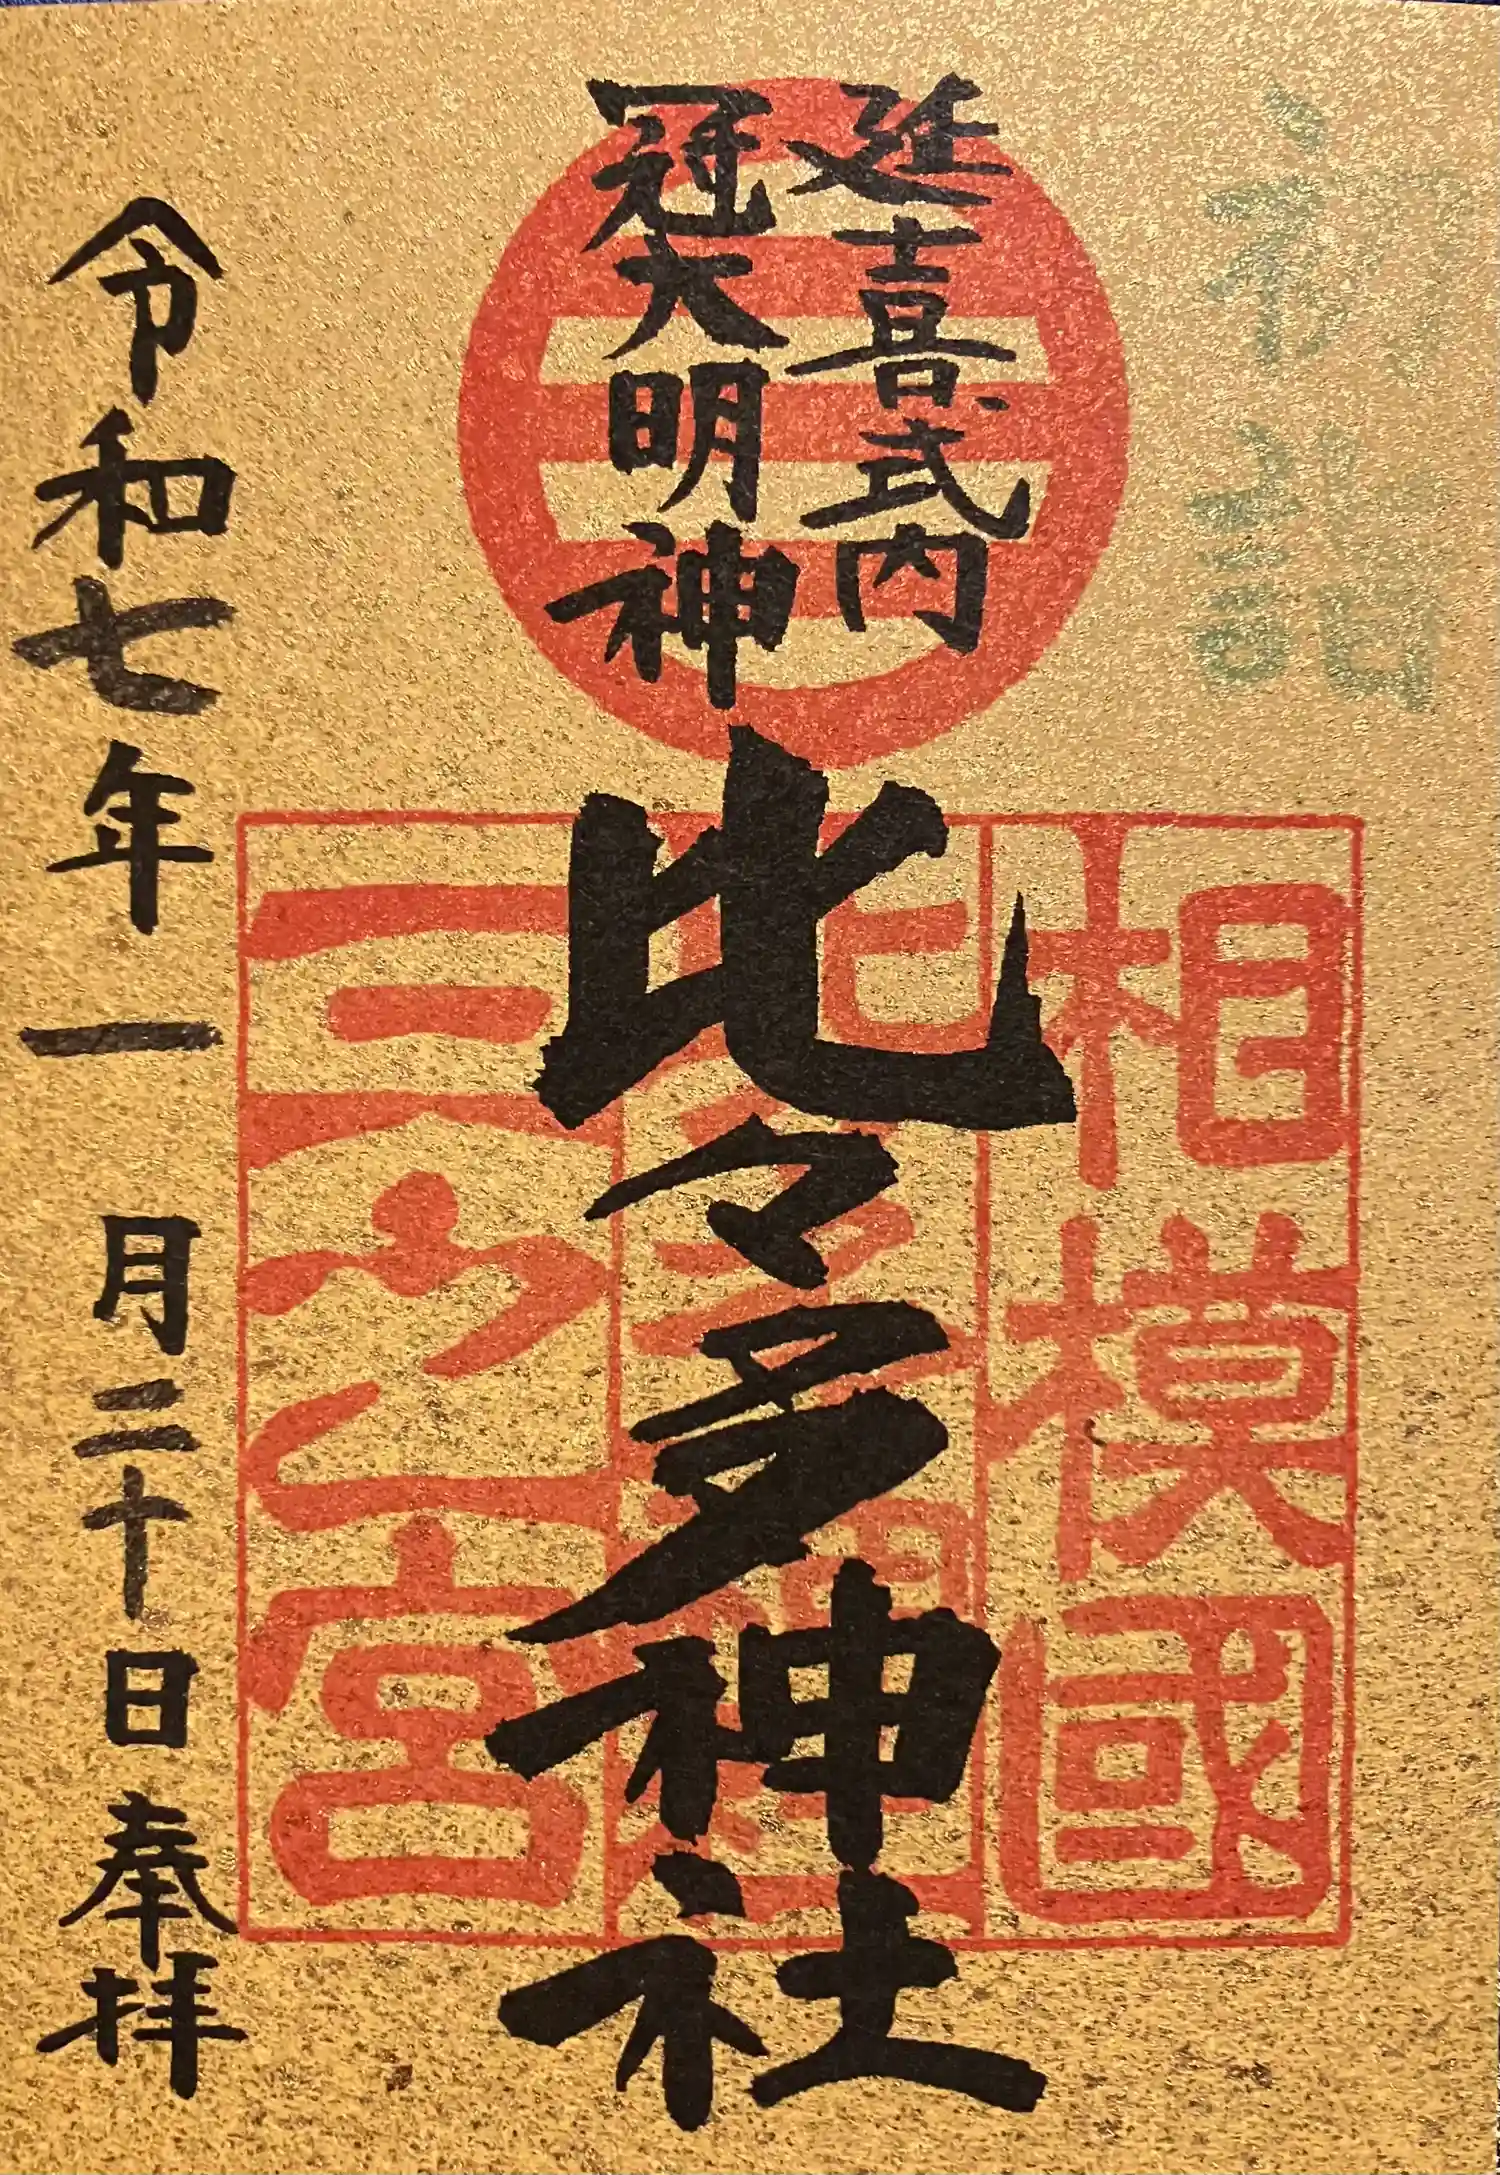 延喜式内
冠大明神
相模國
三之宮
比々多神社
令和七年一月二十日奉拝